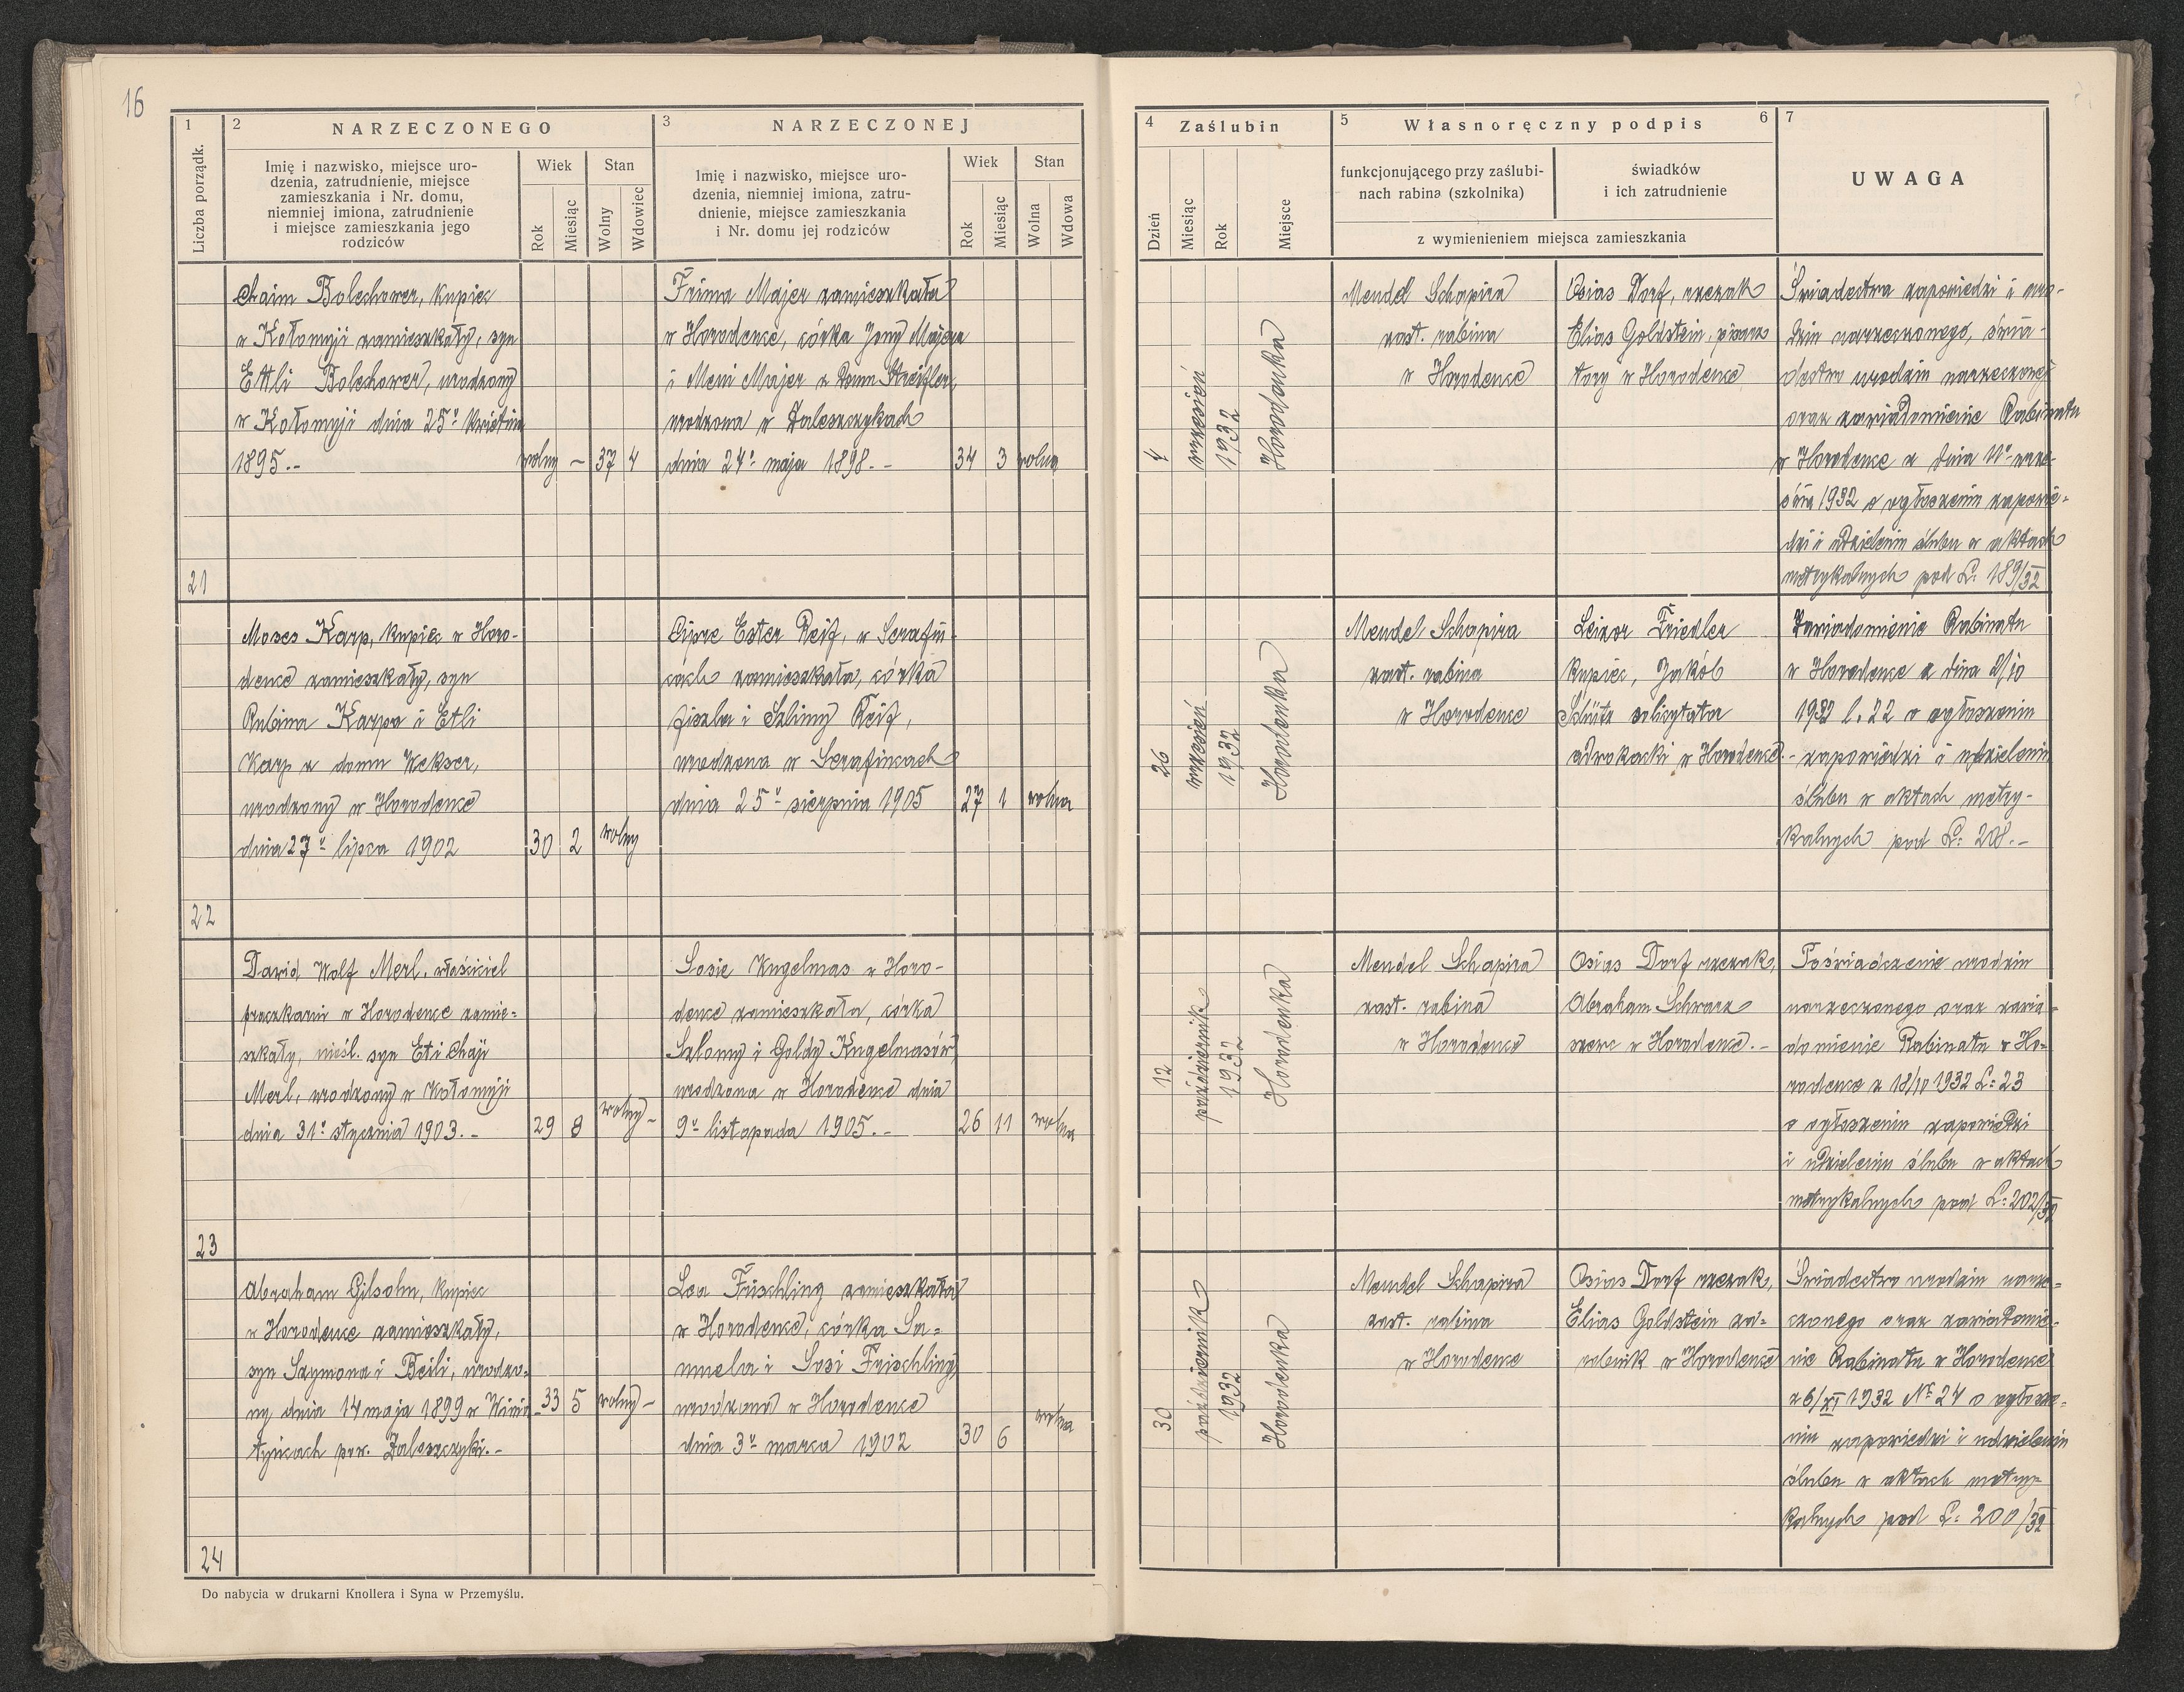 16
1
2
NARZECZONEGO
3
NARZECZONEJ
Liczba porządk.
Imię i nazwisko, miejsce uro-
dzenia, zatrudnienie, miejsce
zamieszkania i Nr. domu,
niemniej imiona, zatrudnienie
i miejsce zamieszkania jego
rodziców
Wiek
Stan
Rok
Miesiąc
Wolny
Wdowiec
Imię i nazwisko, miejsce uro-
dzenia, niemniej imiona, zatru-
dnienie, miejsce zamieszkania
i Nr. domu jej rodziców
Wiek
Stan
Rok
Miesiąc
Wolna
Wdowa
4
Zaślubin
5
Własnoręczny podpis
6
7
Dzień
Miesiąc
Rok
Miejsce
funkcjonującego przy zaślubi-
nach rabina (szkolnika)
świadków
i ich zatrudnienie
z wymienieniem miejsca zamieszkania
UWAGA
21
Chaim Bolechower, kupiec
w Kołomyji zamieszkały, syn
Ettli Bolechower, urodzony
w Kołomyji dnia 25º kwietnia
1895.-
wolny - 37 4
Frima Majer zamieszkała
w Horodence, córka Jony Majera
i Meni Majer z domu Streifler,
urodzona w Zaleszczykach
dnia 24º maja 1898.-
34 3 wolna
4
wrzesień
1932
Horodenka
Mendel Schapira
zast. rabina
w Horodence
Osias Dorf, rzezak
Elias Goldstein, pisarz
tory w Horodence
Świadectwa zapowiedzi i uro-
dzin narzeczonego, świa-
dectwo urodzin narzeczonej
oraz zawiadomienie Rabinatu
w Horodence z dnia 11º wrze-
śnia 1932 o ogłoszeniu zapowie-
dzi i udzieleniu ślubu w aktach
metrykalnych pod L: 189/32
22
Moses Karp, kupiec w Horo-
dence zamieszkały, syn
Rubina Karpa i Etli
Karp z domu Wekser,
urodzony w Horodence
dnia 27º lipca 1902
30 2 wolny
Cipre Ester Reif, w Serafin-
cach zamieszkała, córka
Fiszla i Szlimy Reif,
urodzona w Serafincach
dnia 25º sierpnia 1905
27 1 wolna
26
wrzesień
1932
Horodenka
Mendel Schapira
zast. rabina
w Horodence
Leizor Friedler
kupiec, Jakób
Schütz solicytator
adwokacki w Horodence.-
Zawiadomienie Rabinatu
w Horodence z dnia 2/10
1932 l. 22 o ogłoszeniu
zapowiedzi i udzieleniu
ślubu w aktach metry-
kalnych pod L: 208.-
23
Dawid Wolf Merl, właściciel
praczkarni w Horodence zamie-
szkały, nieśl. syn Eti Chaji
Merl, urodzony w Kołomyji
dnia 31º stycznia 1903.-
29 8 wolny-
Sosie Kugelmas w Horo-
dence zamieszkała, córka
Szlomy i Goldy Kugelmasów,
urodzona w Horodence dnia
9º listopada 1905.-
26 11 wolna
12
październik
1932
Horodenka
Mendel Schapira
zast. rabina
w Horodence
Osias Dorf rzezak,
Abraham Schwarz
szewc w Horodence.-
Poświadczenie urodzin
narzeczonego oraz zawia-
domienie Rabinatu w Ho-
rodence z 18/10 1932 L: 23
o ogłoszeniu zapowiedzi
i udzieleniu ślubu w aktach
metrykalnych pod L: 202/32
24
Abraham Gilsohn, kupiec
w Horodence zamieszkały,
syn Szymona i Beili, urodzo-
ny dnia 14 maja 1899 w Winia-
tyńcach pow. Zaleszczyki.-
33 5 wolny-
Lea Frischling zamieszkała
w Horodence, córka Sa-
muela i Sosi Frischling,
urodzona w Horodence
dnia 3º marca 1902
30 6 wolna
30
październik
1932
Horodenka
Mendel Schapira
zast. rabina
w Horodence
Osias Dorf rzezak,
Elias Goldstein za-
robnik w Horodence
Świadectwo urodzin narze-
czonego oraz zawiadomie-
nie Rabinatu w Horodence
z 6/XI 1932 Nº 24 o ogłosze-
niu zapowiedzi i udzieleniu
ślubu w aktach metry-
kalnych pod L: 200/32
Do nabycia w drukarni Knollera i Syna w Przemyślu.